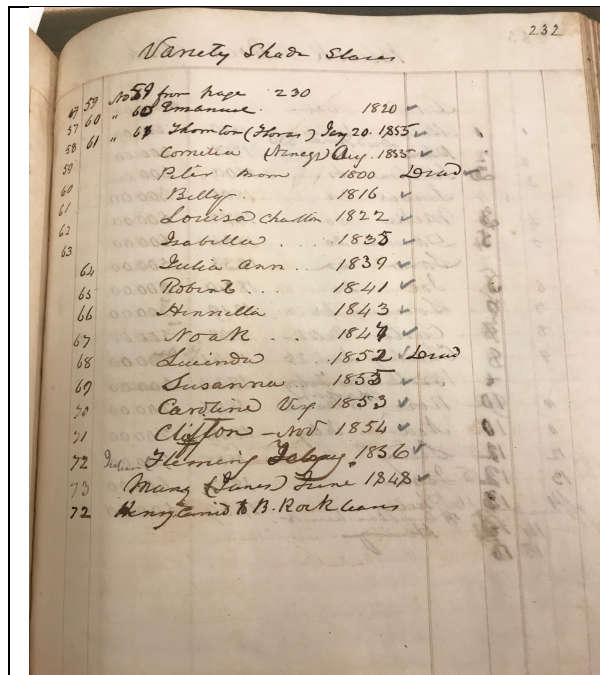 232
Variety Shade Slaves
59 No 59 from page 230
57 60 " 60 Emanuel. 1820 ✓
58 61 " 61 Thornton (Floras) Jany 20. 1855 ✓
59 Cornelia (Nancys) Aug. 1855 ✓
60 Peter Born 1800 Dead ✓
61 Billy. 1816 ✓
62 Louisa Charlton 1822 ✓
63 Isabella . . . 1835 ✓
64 Julia Ann . . 1839 ✓
65 Robert . . . 1841 ✓
66 Henrietta 1843 ✓
67 Noah . . . 1847 ✓
68 Lucinda . . 1852 ✓ Dead
69 Susanna . . 1855 ✓
70 Caroline 1853 ✓
71 Clifton - Nov 1854 ✓
72 Fleming 1856 ✓
73 Mary (Janes) June 1848 ✓
72 Henry to B. Rock